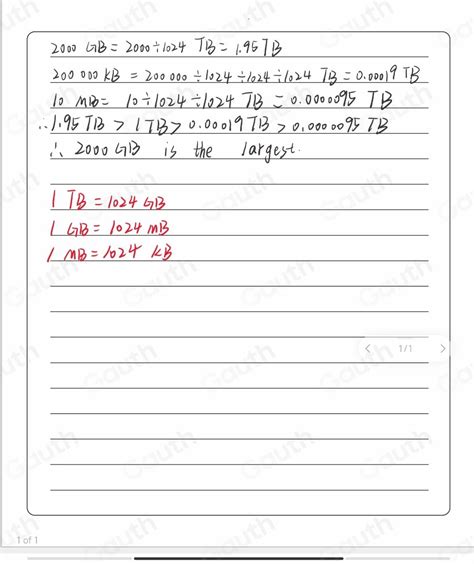 2000 GB = 2000÷1024 TB = 1.95TB
200 000 KB = 200 000 ÷1024 ÷1024 ÷1024 TB = 0.00019 TB
10 MB = 10÷1024 ÷1024 TB = 0.0000095 TB
∴ 1.95 TB > 1 TB > 0.00019 TB > 0.0000095 TB
∴ 2000 GB is the largest.
1 TB = 1024 GB
1 GB = 1024 MB
1 MB = 1024 KB
1/1
1 of 1
Gauth